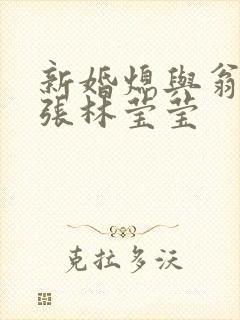 新婚熄與翁
張林莹莹
克拉多沃